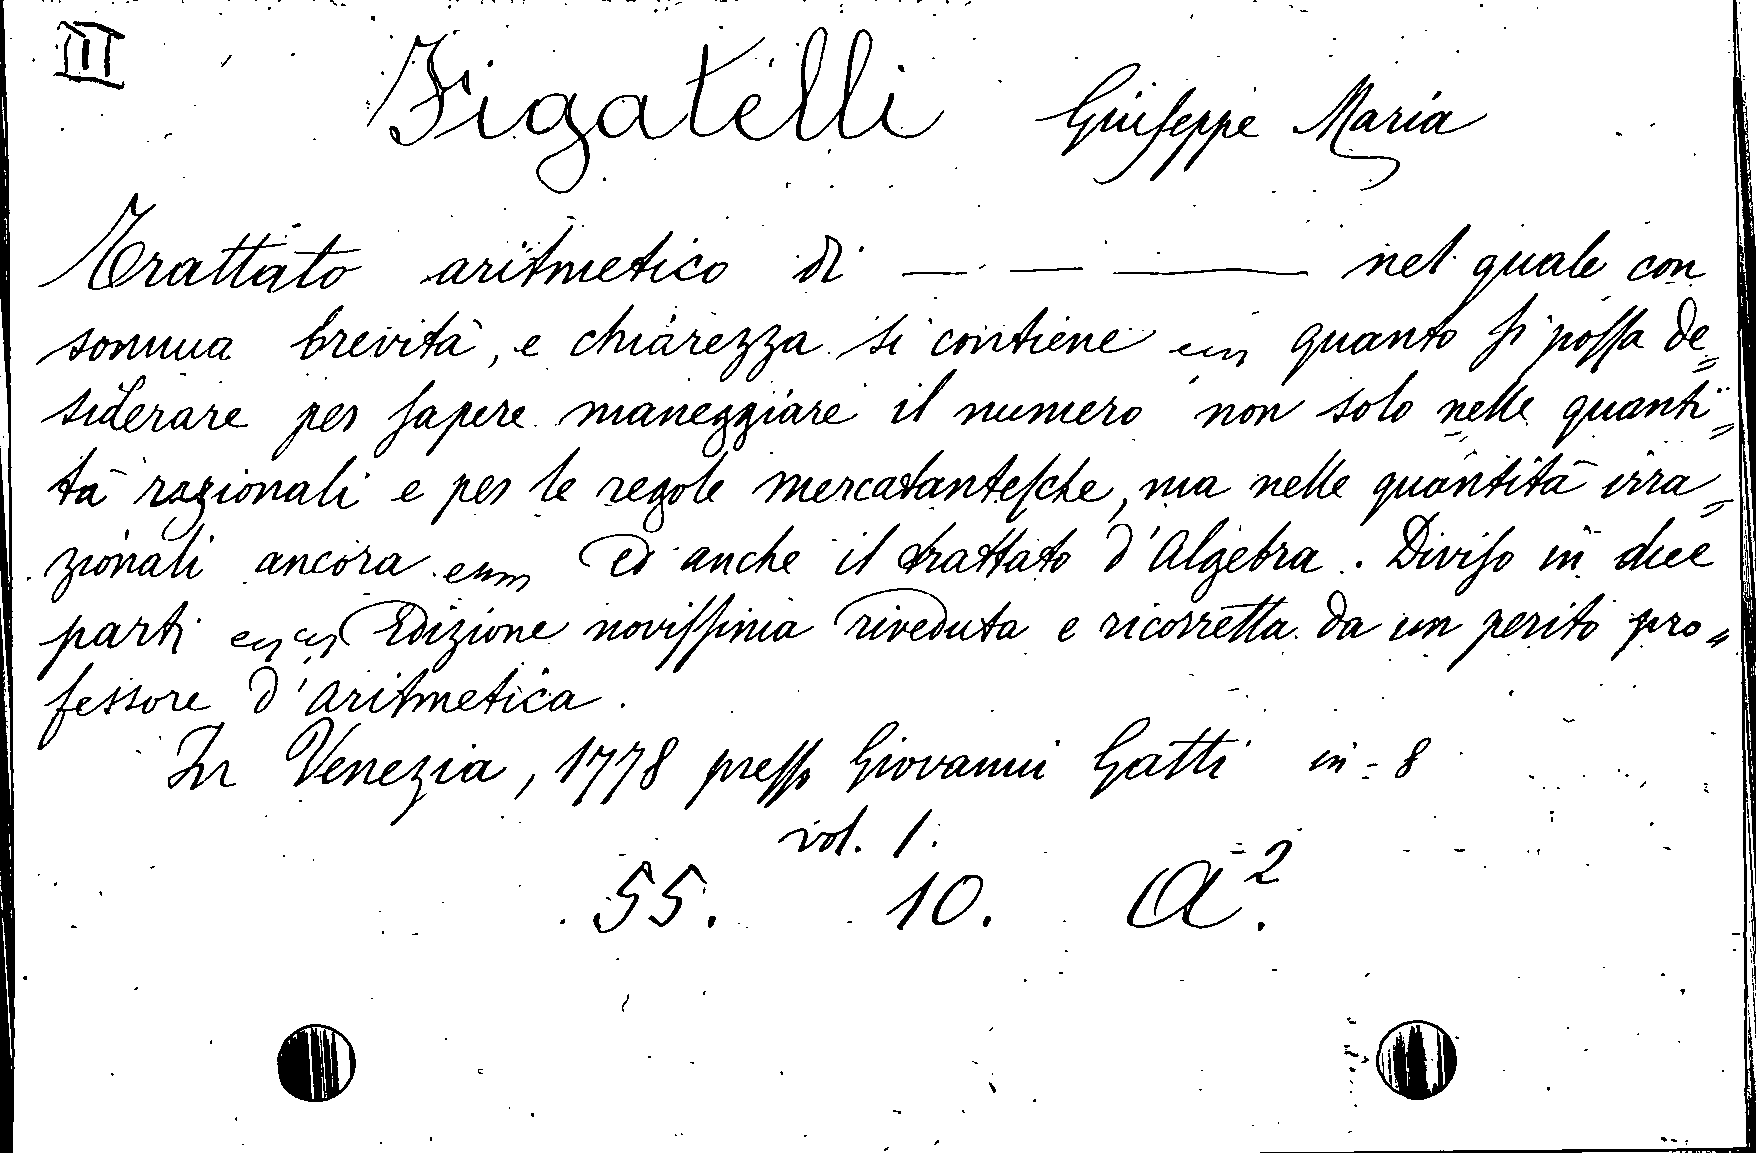 III
Figatelli Giuseppe Maria
Trattato aritmetico di — — — nel quale con
somma brevità, e chiarezza si contiene quanto si possa de=
siderare per sapere maneggiare il numero non solo nelle quanti=
tà razionali e per le regole mercatantesche, ma nelle quantità irra=
zionali ancora ed anche il trattato d'Algebra. Diviso in due
parti Edizione novissima riveduta e ricorretta da un perito pro=
fessore d'aritmetica.
In Venezia, 1778 presso Giovanni Gatti in=8
vol. 1.
55. 10. A².